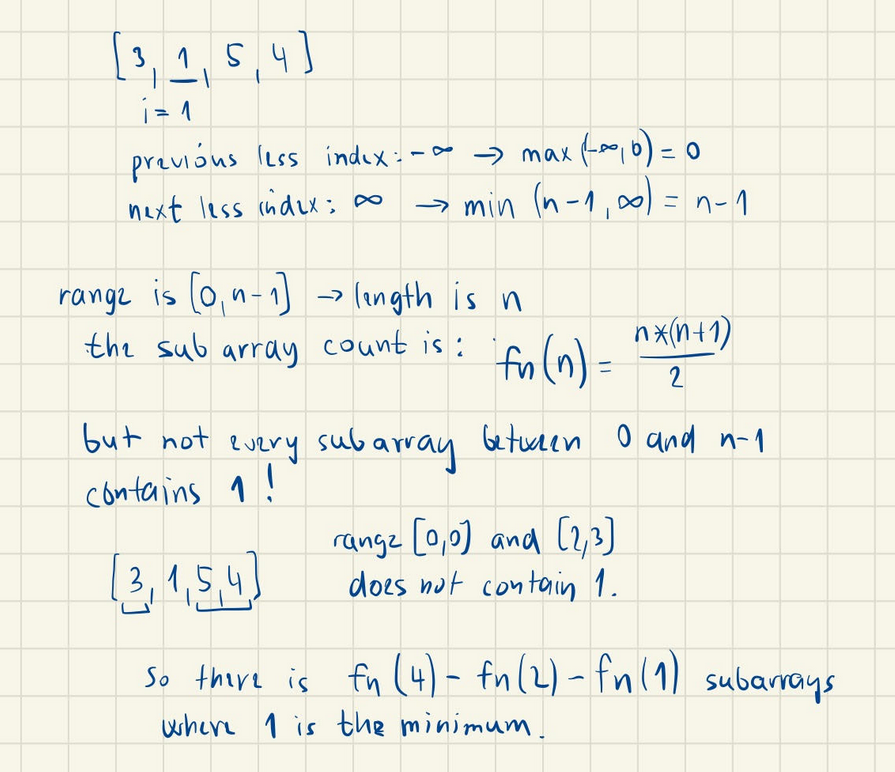 [3, 1, 5, 4]
i = 1
previous less index: -∞ → max (-∞, 0) = 0
next less index: ∞ → min (n-1, ∞) = n-1
range is [0, n-1] → length is n
the sub array count is: fn(n) = n*(n+1) / 2
but not every subarray between 0 and n-1
contains 1!
range [0,0] and [2,3]
[3, 1, 5, 4] does not contain 1.
So there is fn(4) - fn(2) - fn(1) subarrays
where 1 is the minimum.